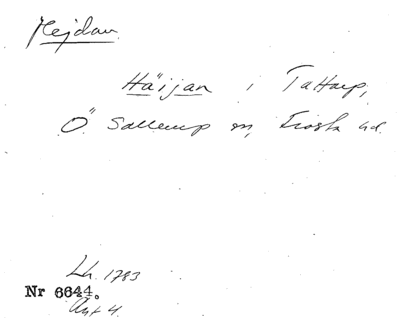 Hejdan.
Häijan i Tattarp,
Ö Sallerup sn, Frosta hd.
Lh. 1783
Nr 6644.
Akt 4.